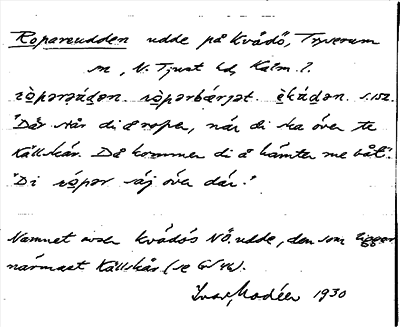 Ropareudden udde på Kvädö, Tryserum
sn, N. Tjust hd, Kalm. l.
ròpərəúdən ròpərbǽrjət èkúdən s. 152.
"Där står di å ropar, när di ska över te
Källskär. Då kommer di å hämter me båt".
"Di ròpər sáj óvə där."
Namnet avser Kvädös NÖ. udde, den som ligger
närmast Källskär (se G/46).
Ivar Modéer 1930